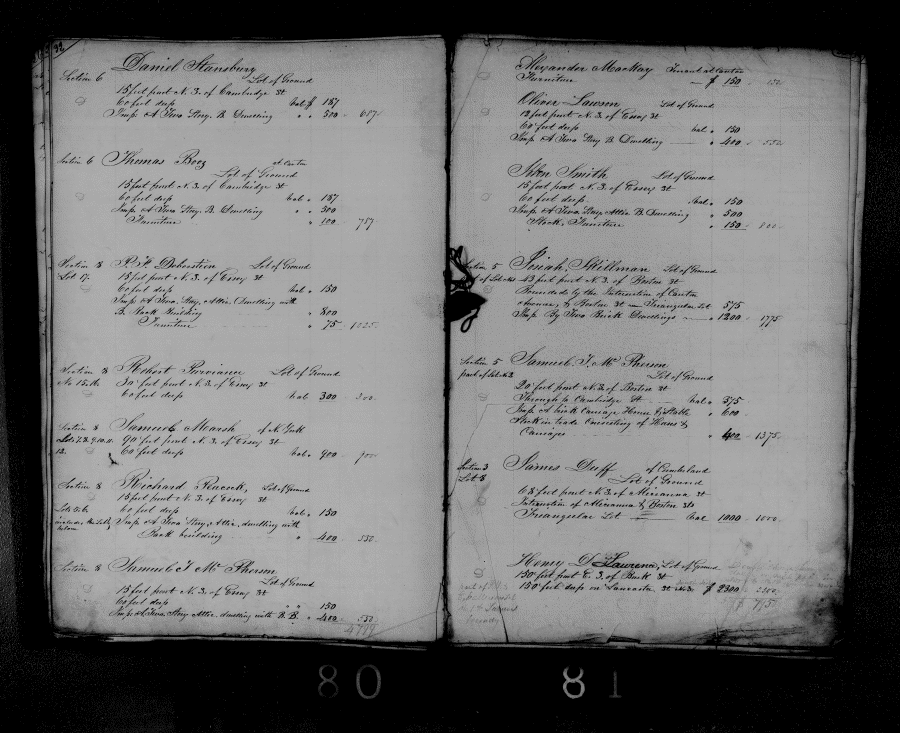 92
Daniel Stansbury
Section 6 Lot of Ground
15 feet front N. S. of Cambridge St
60 feet deep bal $ 187
Imp. A Two Story B. Dwelling " " 500 - 687
Section 6 Thomas Booz at Canton
Lot of Ground
15 feet front N. S. of Cambridge St
60 feet deep bal " 187
Imp. A Two Story B. Dwelling " " 500
Furniture " 100 - 787
Section 8 Lot of Ground
Lot 17. 15 feet front N. S. of Essex St
60 feet deep bal " 150
Imp. A Two Story Attic Dwelling with
B. Back Building " 800
Furniture " 75 - 1025
Section 8 Robert Purviance Lot of Ground
No 15.16 30 feet front N. S. of Essex St
60 feet deep bal 300 - 300
Section 8 Samuel Marsh of N. York
Lots 7.8.9.10.11. 90 feet front N. S. of Essex St
12. 60 feet deep bal " 900 - 900
Section 8 Richard Lot of Ground
15 feet front N. S. of Essex St
Lots 5.6 60 feet deep bal " 150
Imp. A Two Story Attic dwelling with
Back building " 400 - 550
Section 8 Samuel T McPherson
Lot of Ground
15 feet front N. S. of Essex St
60 feet deep " " 150
Imp. A Two Story Attic dwelling with B. B. " 400 - 550
Alexander MacKay Tenant at Canton
Furniture $ 150 - 150
Oliver Lawson Lot of Ground
12 feet front N. S. of Essex St
60 feet deep bal " 150
Imp. A Two Story B Dwelling " 400 - 550
John Smith Lot of Ground
15 feet front N. S. of Essex St
60 feet deep bal " 150
Imp. A Two Story Attic B. Dwelling " 500
Stock, Furniture " 150 - 800
Section 5 Josiah Stillman Lot of Ground
13 feet front N. S. of Boston St
Bounded by the Intersection of Canton
Avenue & Boston St Triangular Lot 575
Imp. By Two Brick Dwellings " 1200 - 1775
Section 5 Samuel T. McPherson
part of Lot No 2 Lot of Ground
20 feet front N. S. of Boston St
Through to Cambridge St bal " 375
Imp A brick Carriage House & Stable " 600
Stock in trade Consisting of Horses &
Carriages " 400 - 1375
Section 3 James Duff of Cumberland
Lot 8 Lot of Ground
68 feet front N. S. of Aliceanna St
Intersection of Aliceanna & Boston Sts
Triangular Lot bal 1000 - 1000
Henry D Lawrence, Lot of Ground
150 feet front E. S. of Burk St
150 feet deep on Lancaster St $ 2300 - 2300
80
81